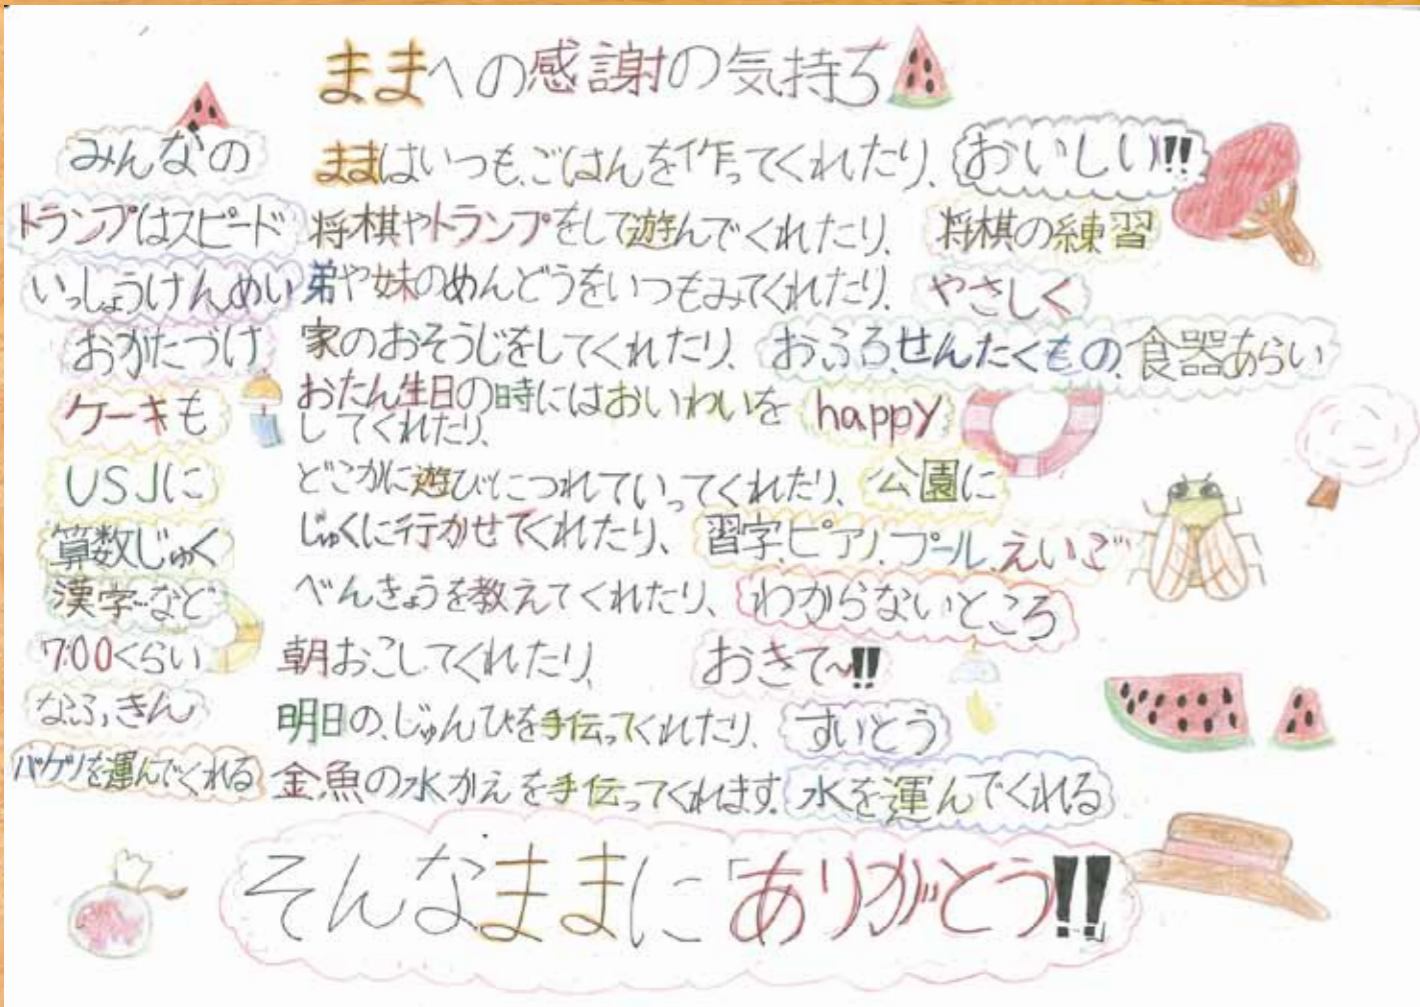 ままへの感謝の気持ち
みんなの ままはいつも、ごはんを作ってくれたり、 おいしい!!
トランプはスピード 将棋やトランプをして遊んでくれたり、 将棋の練習
いっしょうけんめい 弟や妹のめんどうをいつもみてくれたり、 やさしく
おかたづけ 家のおそうじをしてくれたり、 おふろ、せんたくもの、食器あらい
ケーキも おたん生日の時にはおいわいを happy
してくれたり、
USJに どこかに遊びにつれていってくれたり、 公園に
算数じゅく じゅくに行かせてくれたり、 習字、ピアノ、プール、えいご
漢字…など べんきょうを教えてくれたり、 わからないところ
7:00くらい 朝おこしてくれたり、 おきて〜!!
なふきん 明日の、じゅんびを手伝ってくれたり、 すいとう
バケツを運んでくれる 金魚の水かえを手伝ってくれます。 水を運んでくれる
そんなままに「ありがとう!!」